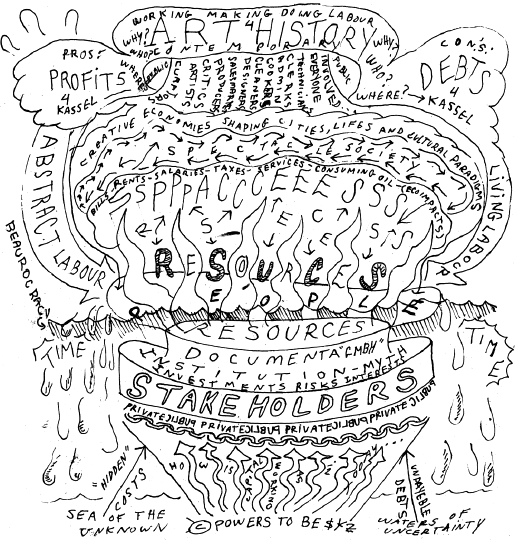 WORKING MAKING DOING LABOUR
ART 4 HISTORY
CONTEMPORARY
WHY?
WHO?
WHERE?
PROS:
PROFITS
4
KASSEL
WHY?
WHO?
WHERE? → KASSEL
CONS:
DEBTS
4
KASSEL
PUBLIC
CURATORS
ARTISTS
CRITICS
PRODUCERS
SALESMEN
DESIGNERS
CLEANERS
COOKERS
CLERKS
TECHNICIANS
EVERYONE
INVOLVED...
PUBLIC
CREATIVE ECONOMIES SHAPING CITIES, LIFES AND CULTURAL PARADIGMS
SPECTACLE SOCIETY
BILLS-RENTS-SALARIES-TAXES-SERVICES-CONSUMING OIL-(ECOIMPACTS)
SPPPACCCEEESSS
ABSTRACT LABOUR
LIVING LABOUR
RESOURCES
PEOPLE
BEAUROCRACY
TIME
TIME
RESOURCES
DOCUMENTA "GMBH"
INSTITUTION-MYTH
INVESTMENTS RISKS INTERESTS
STAKEHOLDERS
PRIVATE PUBLIC PRIVATE PUBLIC PRIVATE PUBLIC
HOW IS ALWAYS WORKING
TODAY...
"HIDDEN" COSTS
UNPAYEBLE DEBTS
SEA OF THE UNKNOWN
© POWERS TO BE $¥£
WATERS OF UNCERTAINTY